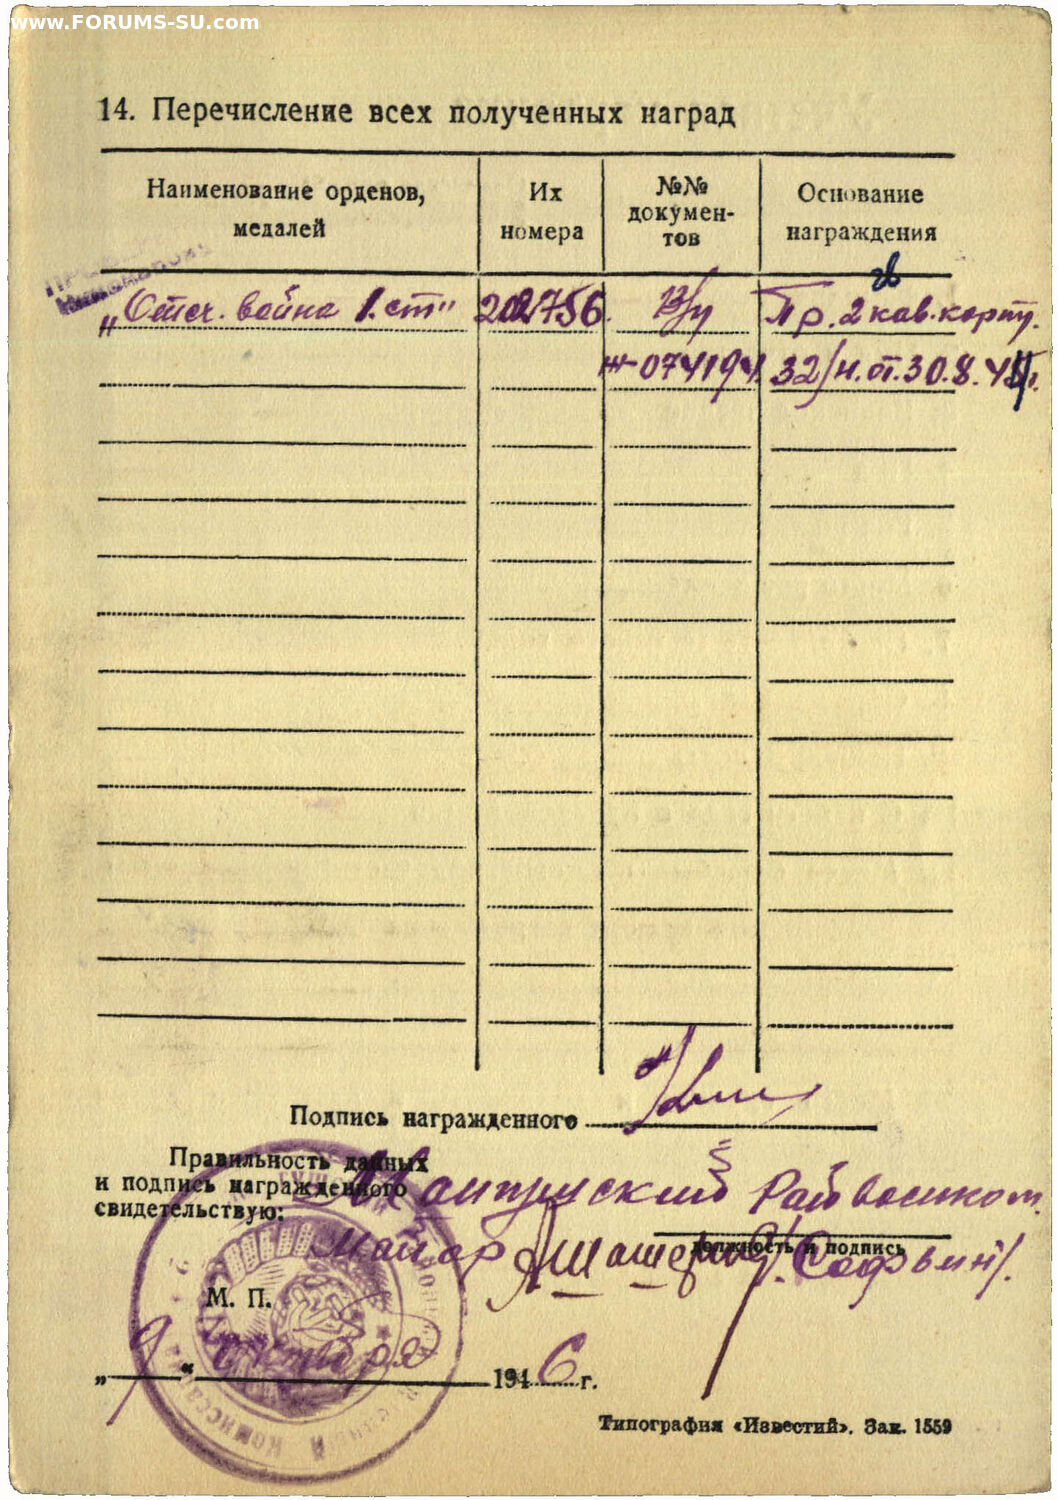 www.FORUMS-SU.com
14. Перечисление всех полученных наград
Наименование орденов, медалей
Их номера
№№ докумен-
тов
Основание награждения
гв
„Отеч. война 1. ст" 202756 Пр. 2 кав. корп.
074194 32/н. от. 30.8.
Подпись награжденного
Правильность данных
и подпись награжденного
свидетельствую:
Райвоенком
Майор
должность и подпись
М. П.
„9" октября 1946 г.
Типография «Известий». Зак. 1559